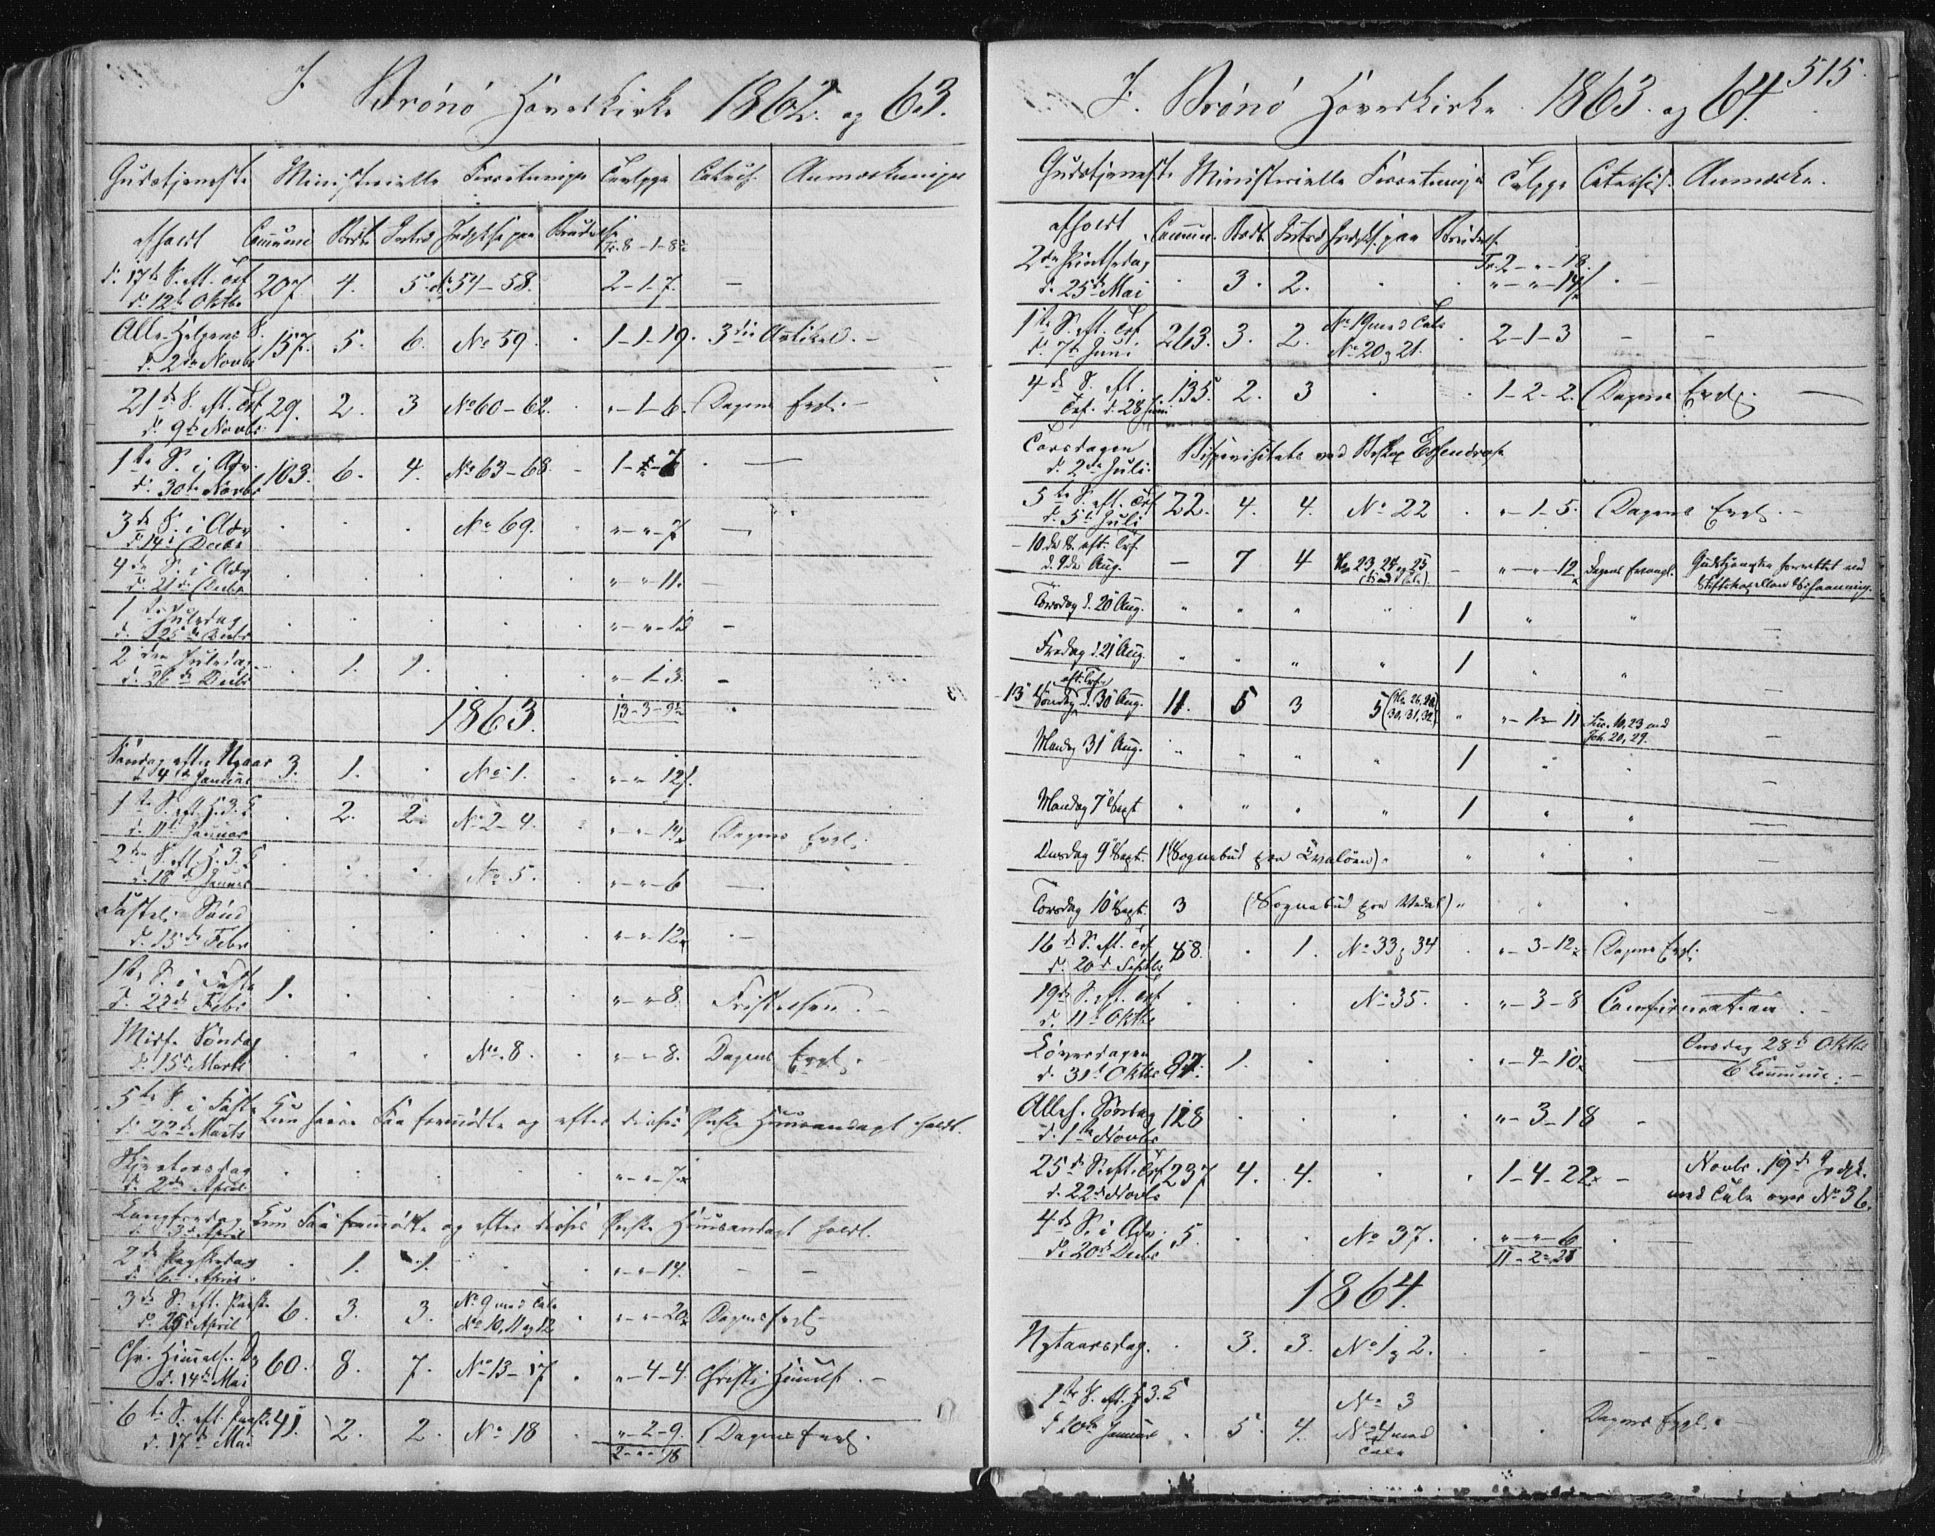 I. Brönö Hovedkirke 1862. og 63.
Gudstjeneste Ministerielle Forretninger Tavlpge Catech. Anmærkninger
afholdt Communi Bordt Introd Jordk: paa Brudevi Fr. 8-1-8
d. 17de S. eft. Trf d. 12te Oktbr 207. 4. 5. No 54-58. 2-1-7. -
Alle Helgens S. d. 2den Novbr 157. 5. 6. No 59. 1-1-19. 3die Artikel. -
21de S. eft. Trf d. 9de Novbr 29. 2. 3 No 60-62. "-1-6. Dagens Evgl. -
1ste S. i Adv. d. 30te Novbr 103. 6. 4. No 63-68 - -
3de S. i Adv d. 14de Decbr No 69. "-"-7 -
4de S. i Adv d. 21de Decbr "-"-11.
1ste Juledag d. 25de Decbr "-"-12 -
2den Juledag d. 26de Decbr 1. 1. "-1-3. -
1863. 13-3-9½
Söndag efter Nyaar d. 4de Januar 3. 1. No 1. "-"-12½.
1ste S. eft. H. 3. K d. 11te Januar 2. 2. No 2-4. "-"-14. Dagens Evgl.
2den S. eft. H. 3. K d. 18de Januar No 5. "-"-6 -
Fastel. Sönd d. 15de Febr "-"-12. -
1ste S. i Faste d. 22de Febr 1. "-"-8. Fristelsen. -
Midf. Söndag d. 15de Marts No 8. "-"-8. Dagens Evgl.
5te S. i Faste d. 22de Marts Kun saare Faa fremmödte og efter disses Önske Huusandagt holdt.
Skjærtorsdag d. 2den April "-"-7.
Langfredag d. 3de April Kun Faa fremmödte og efter disses Önske Huusandagt holdt.
2den Paaskedag d. 6te April 1. 1. "-"-14. - -
3de S. eft. Paaske d. 26de April 6. 3. 3. No 9 med Tale No 10, 11 og 12 "-"-20. Dagens Evgl.
Chr. Himmelf. Dag d. 14de Mai 60. 8. 7. No 13-17 "-4-4. Christi Himmelf. -
6te S. eft. Paaske d. 17de Mai 41. 2. 2. No 18 "-2-9. Dagens Evgl.
515.
I. Brönö Hovedkirke 1863. og 64.
Gudstjeneste Ministerielle Forretninger Tavlpge Catechis. Anmærkn.
afholdt Commun. Bordt. Introd Jordk. paa Brudevi.
2den Pintsedag d. 25de Mai 3. 2. Fr. 2-"-18. "-"-14½
1ste S. eft. Trf d. 7de Juni 263. 3. 2. No 19 med Tale No 20 og 21. 2-1-3 - -
4de S. eft. Trf. d. 28 Juni 135. 2. 3 1-2-2. Dagens Evgl. -
Torsdagen d. 2den Juli Bispevisitats ved Biskop Essendrop
5te S. eft. Trf d. 5te Juli 22. 4. 4. No 22 "-1-5. Dagens Evgl. -
10de S. eft. Trf. d. 9de Aug. - 7 4 No 23, 24 og 25 - "-"-12 Dagens Evangl. Gudstjeneste forrettet ved Stiftskapellan
Torsdag d. 20 Aug. " " " " 1 " "
Fredag d. 21 Aug. " " " " 1 " "
13 Söndag eft. Trf. d. 30 Aug. 11. 5 3 5 (No 26, 30, 31, 32) " Luc. 10, 23 med Joh. 20, 29. -
Mandag 31 Aug. " " " " 1 " " -
Mandag 7 Sept " " " " 1 " " -
Onsdag 9 Sept. 1 (Sognebud paa Kvalöen) " " " -
Torsdag 10 Sept. 3 (Sognebud paa) " " " -
16de S. eft. Trf d. 20de Septbr 1. No 33 og 34 "-3-12. Dagens Evgl.
19de S. eft. Trf d. 11te Oktbr No 35. "-3-8 Confirmation. -
Löverdagen d. 31te Oktbr 1. "-4-10. - Onsdag 28de Oktbr 6 Commun. -
Alleh. Söndag d. 1ste Novbr 128 "-3-18 -
25de S. eft. Trf d. 22de Novbr 237 4. 4. 1-4-22 - Novbr. 19de Jordk. med Tale over No 36.
4de S. i Adv. d. 20de Decbr 5. No 37. "-"-6
1864.
Nytaarsdag. 3. 3. No 1 og 2. - -
1ste S. eft. H 3. K d. 10de Januar 5. 4. No 3 No 4 med Tale Dagens Evgl. -